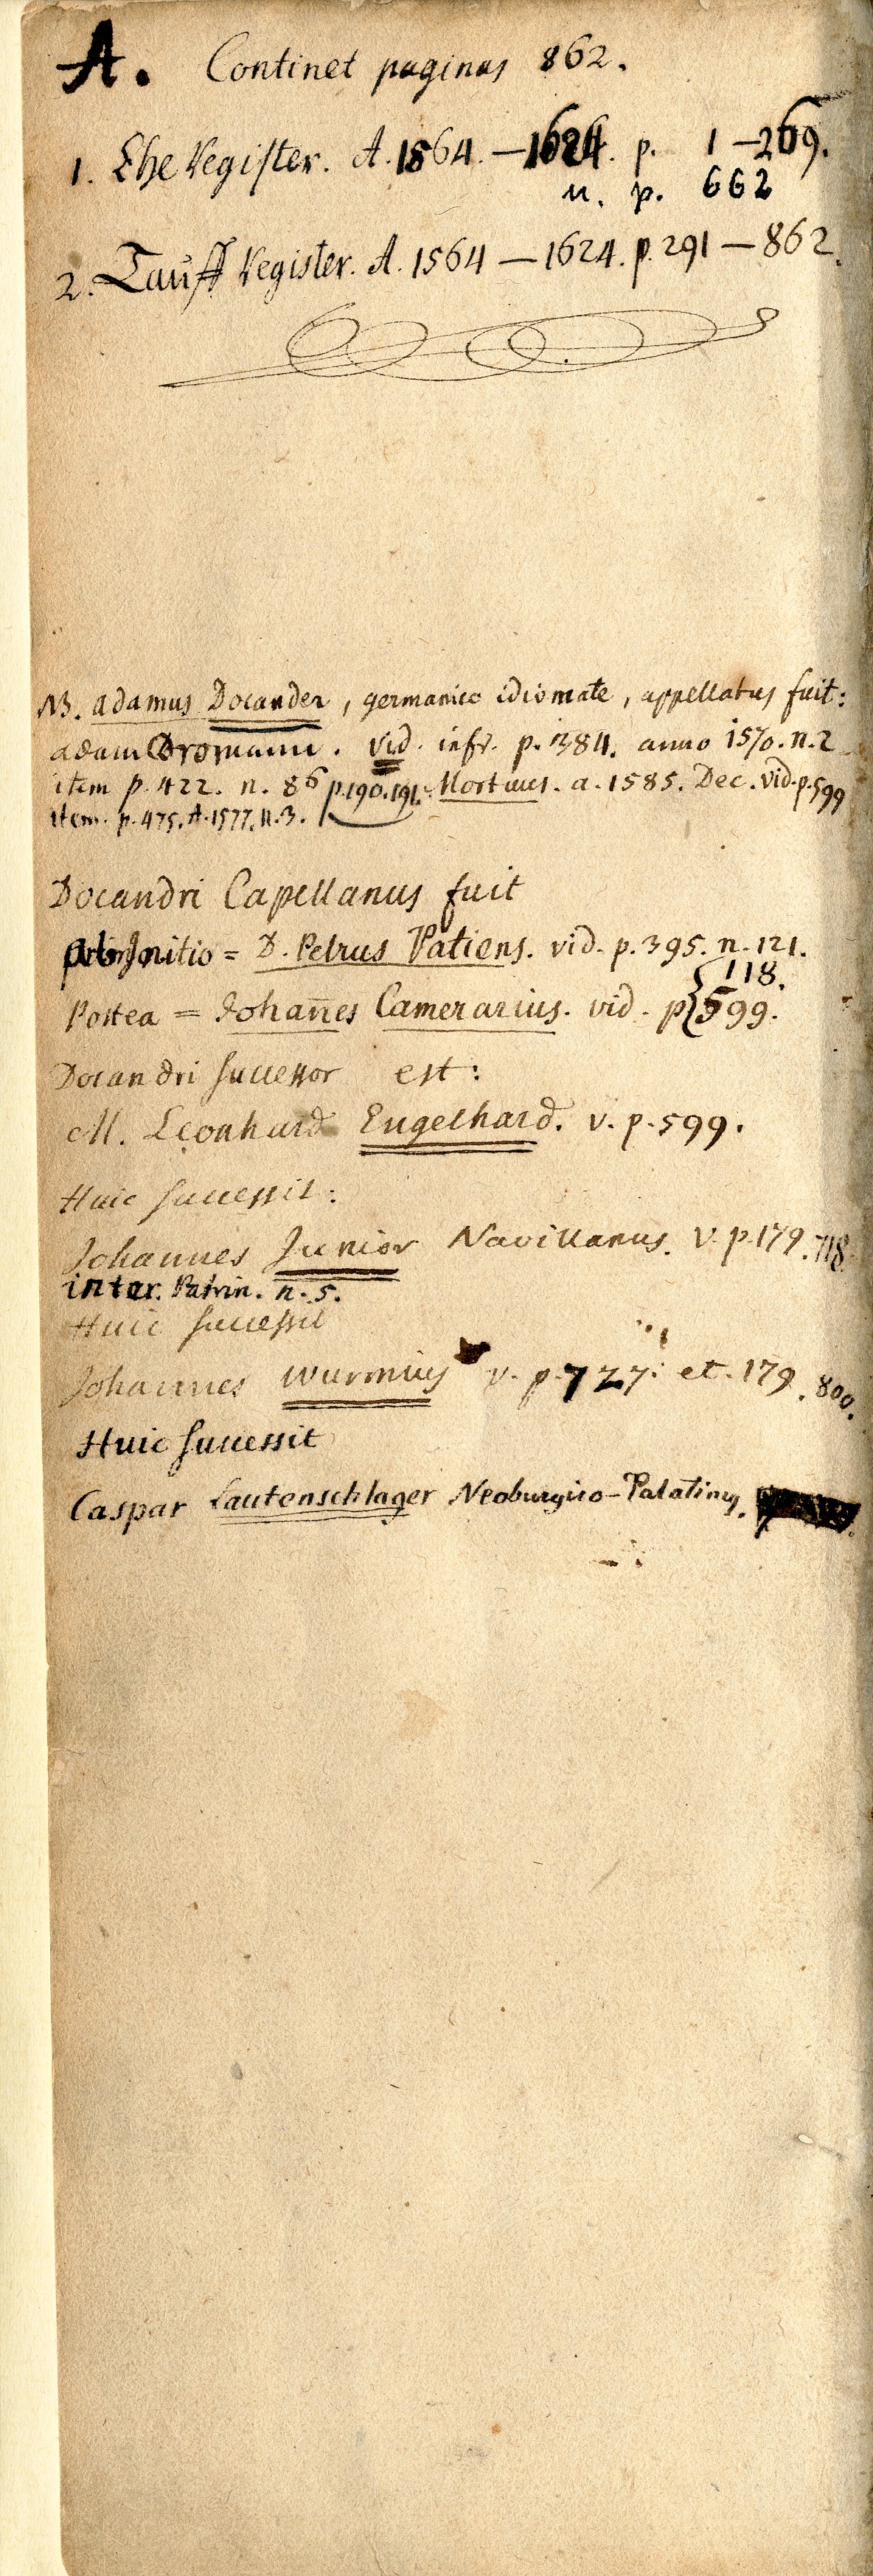 A. Continet paginas 862.
1. Ehe Register. A. 1564. — 1624. p. 1 — 269.
u. p. 662
2. Tauff Register. A. 1564 — 1624. p. 291 — 862.
NB. Adamus Docander, germanico idiomate, appellatus fuit:
Adam . Vid. infr. p. 384. anno 1570. n. 2
item p. 422. n. 86 p. 190. 191. Mortuus. a. 1585. Dec. vid. p. 599
item. p. 475. A. 1577. n. 3.
Docandri Capellanus fuit
ab Initio = D. Petrus Patiens. vid. p. 395. n. 121.
118.
Postea = Johan̄es Camerarius. vid. p { 599.
Docandri successor est:
M. Leonhard Engelhard. v. p. 599.
Huic successit:
Johannes Junior Navillanus. V. p. 179. 718.
inter. Patrin. n. 5.
Huic successit
Johannes Wurmius v. p. 727. et. 179. 800.
Huic successit
Caspar Lautenschlager Neoburgico-Palatinus.